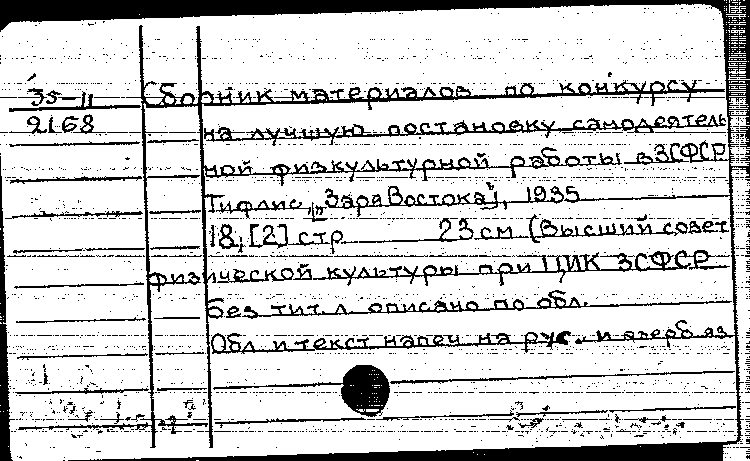 35-11 Сборник материалов по конкурсу
2168 на лучшую постановку самодеятель
ной физкультурной работы в ЗСФСР
Тифлис, [„Заря Востока"], 1935
18, [2] стр 23 см (Высший совет
физической культуры при ЦИК ЗСФСР
Без тит. л. описано по обл.
Обл и текст напеч на рус. и азерб яз